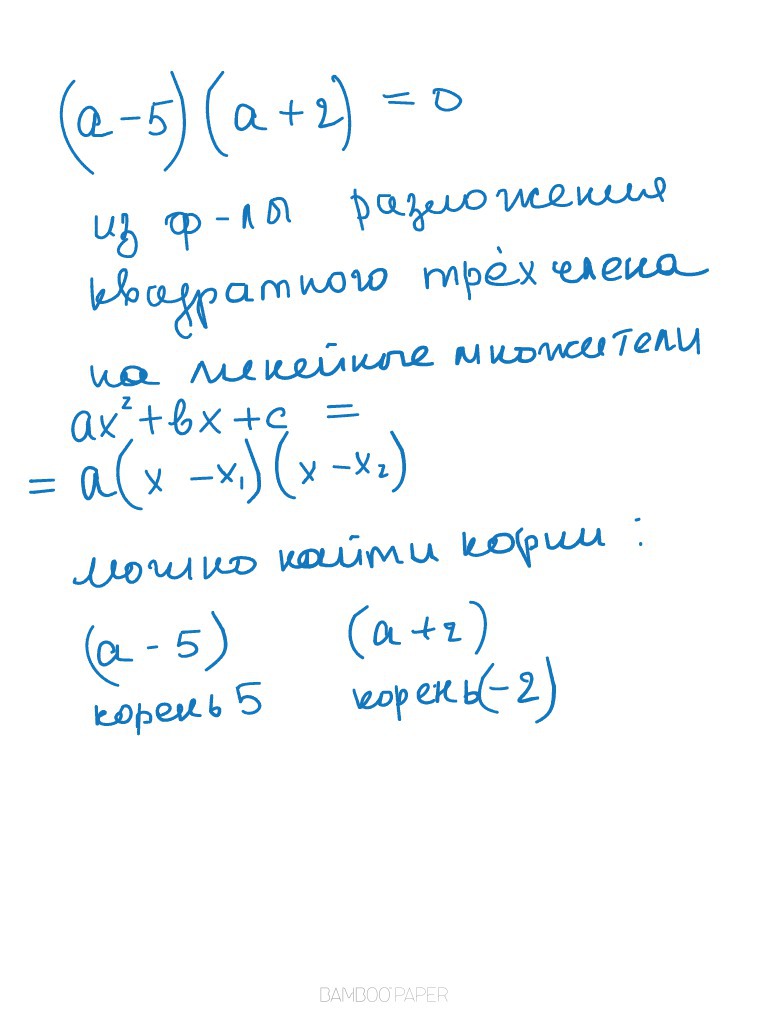 (a-5)(a+2) = 0
из ф-лы разложения
квадратного трёхчлена
на линейные множители
ax²+bx+c =
= a(x -x₁)(x -x₂)
можно найти корни :
(a - 5) (a +2)
корень 5 корень(-2)
BAMBOO PAPER